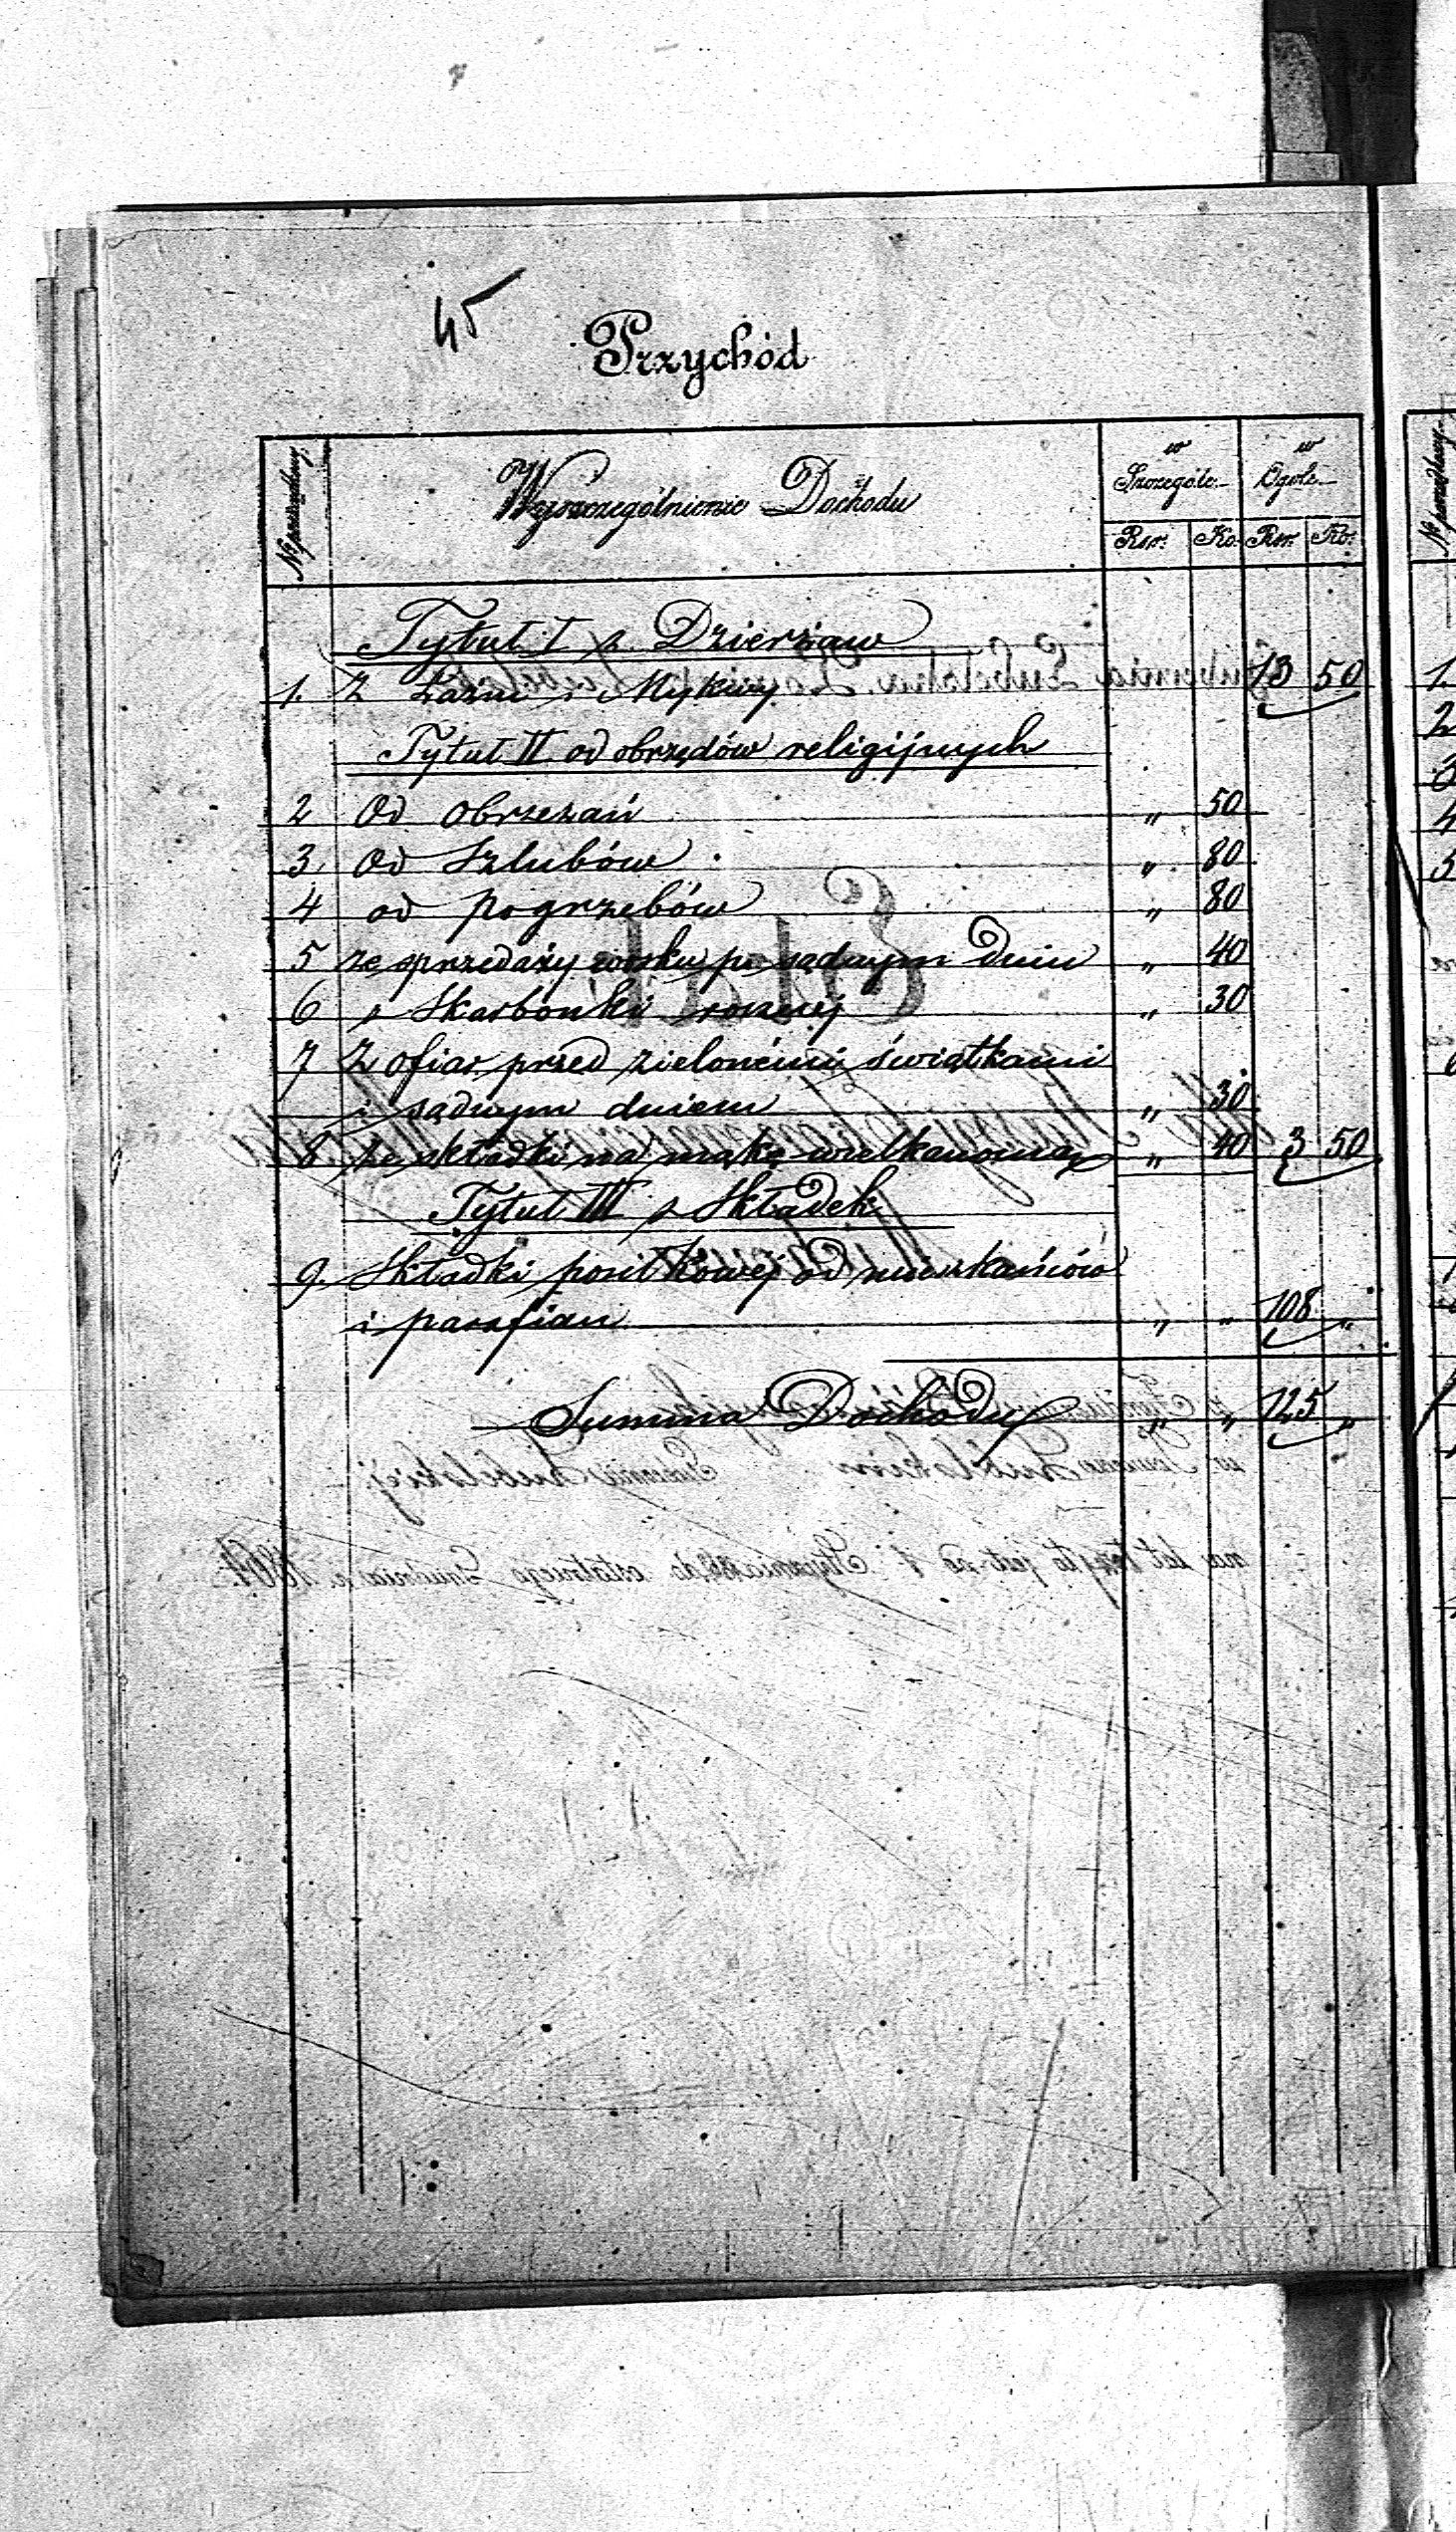 45
Przychód
№ porządkowy
Wyszczególnienie Dochodu
w Szczególe
w Ogóle
Rsr. Ko. Rsr. Ko.
Tytuł I z Dzierżaw
1. Z Łaźni i Mykwy 13 50
Tytuł II od obrzędów religijnych
2 Od obrzezań „ 50
3. Od Szlubów „ 80
4 od pogrzebów „ 80
5 ze sprzedaży wosku po sądnym dniu „ 40
6 z Skarbonki rocznej „ 30
7 Z ofiar przed zielonémi świątkami
i sądnym dniem „ 30
8 ze składki na mąkę wielkanocną „ 40 3 50
Tytuł III z Składek
9. Składki posiłkowej od mieszkańców
i parafian „ „ 108 „
Summa Dochodu „ „ 125 „